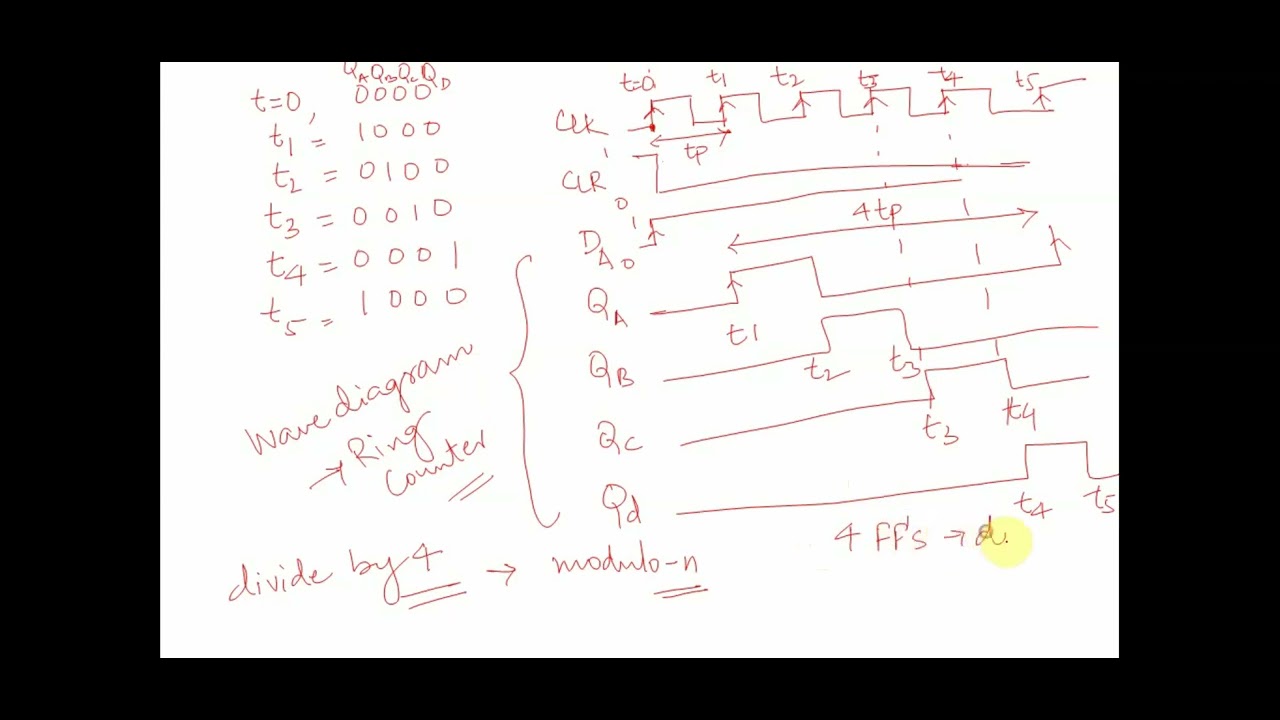 QA QB QC QD
t=0, 0000
t1 = 1000
t2 = 0100
t3 = 0010
t4 = 0001
t5 = 1000
wave diagram
→ Ring
counter
divide by 4 → modulo-n
t=0 t1 t2 t3 t4 t5
CLK
tp
1
CLR
0
1
4tp
DA 0
QA
t1
QB
t2 t3
QC
t3 t4
Qd
t4 t5
4 FF's → d.